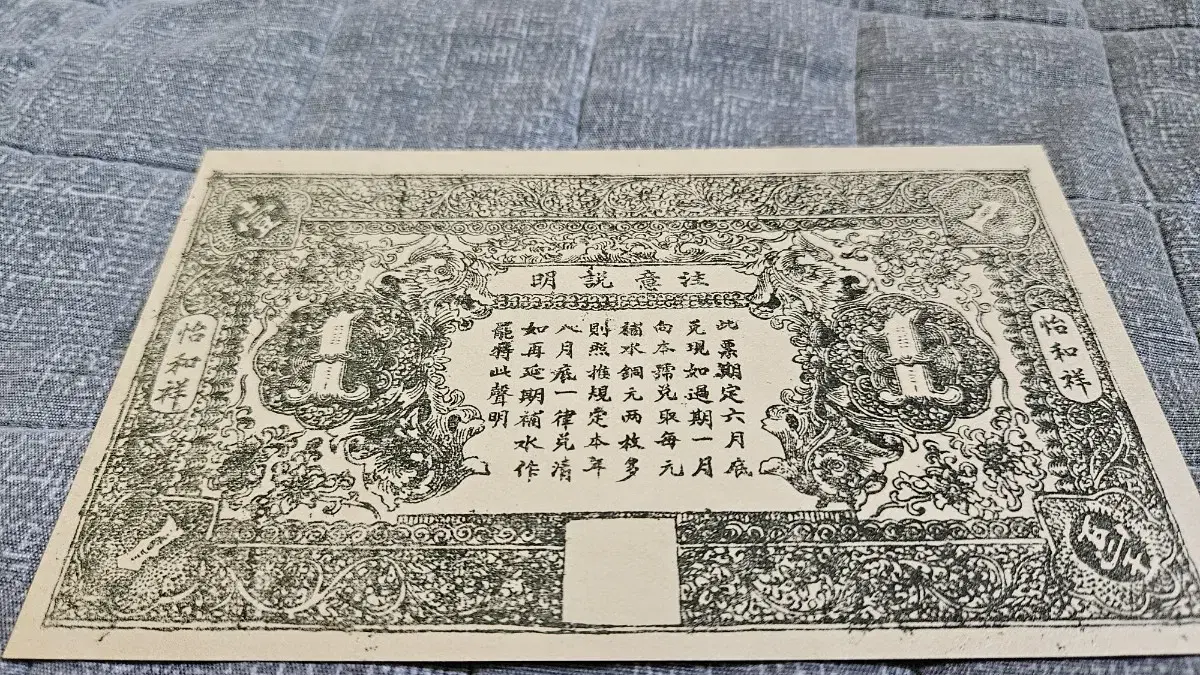 壹
1
注意說明
怡和祥
1
此票期定六月底
兑現如過期一月
向本號兑取每元
補水銅元两枚多
則照推規定本年
八月底一律兑清
如再延期補水作
罷特此聲明
1
怡和祥
1